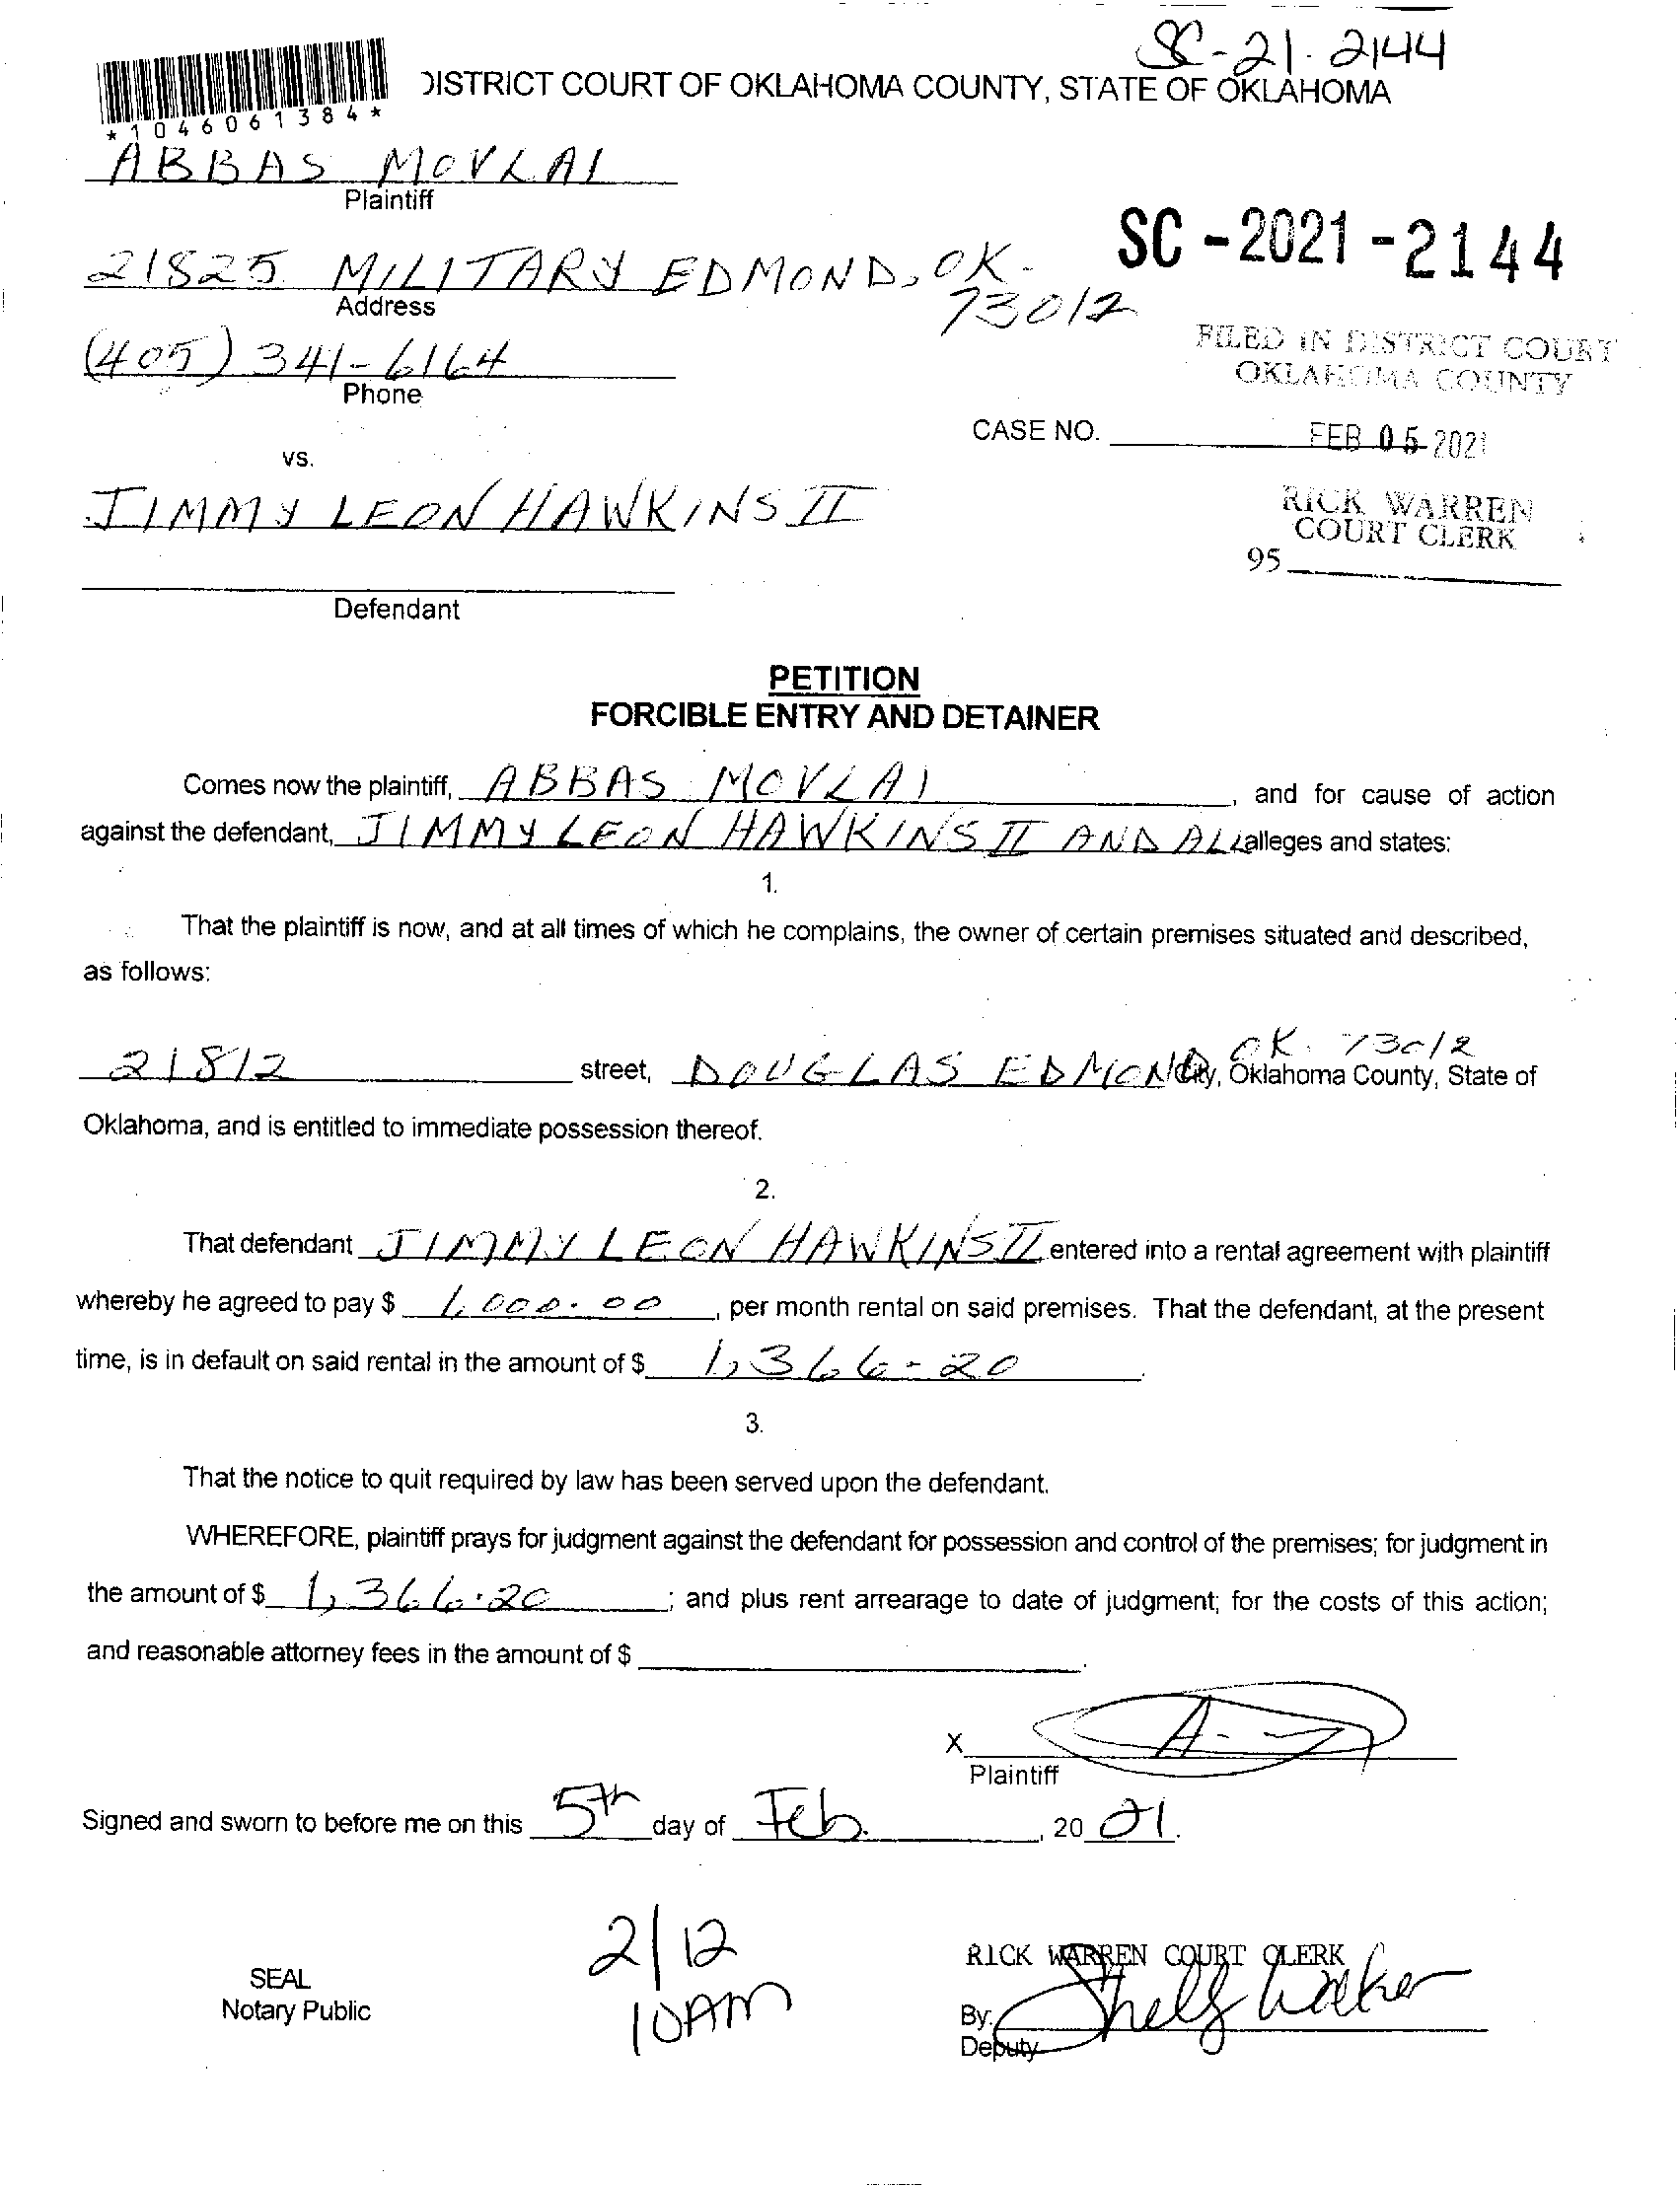 SC-21-2144
DISTRICT COURT OF OKLAHOMA COUNTY, STATE OF OKLAHOMA
*1046061384*
ABBAS MOVLAI
Plaintiff
SC-2021-2144
21825 MILITARY EDMOND, OK.
73012
Address
(405) 341-6164
Phone
FILED IN DISTRICT COURT
OKLAHOMA COUNTY
CASE NO.
FEB 05 2021
vs.
JIMMY LEON HAWKINS II
RICK WARREN
COURT CLERK
95
Defendant
PETITION
FORCIBLE ENTRY AND DETAINER
Comes now the plaintiff, ABBAS MOVLAI, and for cause of action
against the defendant, JIMMY LEON HAWKINS II AND ALL alleges and states:
1.
That the plaintiff is now, and at all times of which he complains, the owner of certain premises situated and described,
as follows:
21812 street, DOUGLAS EDMOND City, OK. 73012 Oklahoma County, State of
Oklahoma, and is entitled to immediate possession thereof.
2.
That defendant JIMMY LEON HAWKINS II entered into a rental agreement with plaintiff
whereby he agreed to pay $ 1,000.00, per month rental on said premises. That the defendant, at the present
time, is in default on said rental in the amount of $ 1,366-20.
3.
That the notice to quit required by law has been served upon the defendant.
WHEREFORE, plaintiff prays for judgment against the defendant for possession and control of the premises; for judgment in
the amount of $ 1,366.20; and plus rent arrearage to date of judgment; for the costs of this action;
and reasonable attorney fees in the amount of $ .
X
Plaintiff
Signed and sworn to before me on this 5th day of Feb., 2021.
2/12
10AM
SEAL
Notary Public
RICK WARREN COURT CLERK
By: Shelly Walker
Deputy